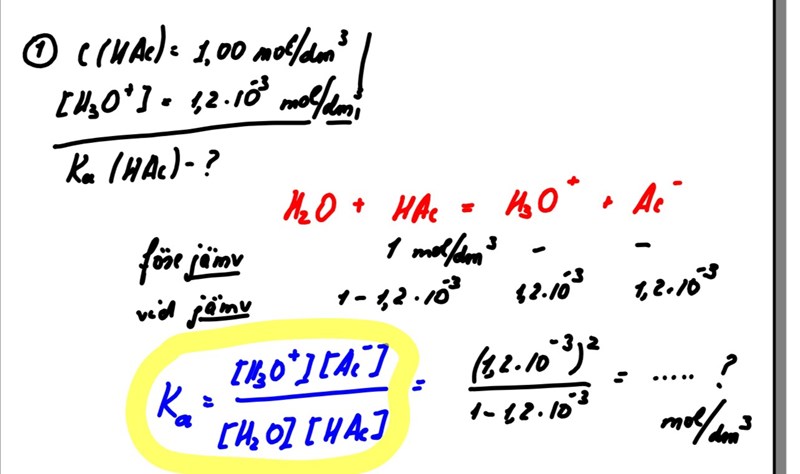 ① C(HAc) = 1,00 mol/dm³
[H₃O⁺] = 1,2·10⁻³ mol/dm³
Kₐ (HAc) - ?
H₂O + HAc = H₃O⁺ + Ac⁻
före jämv 1 mol/dm³ - -
vid jämv 1-1,2·10⁻³ 1,2·10⁻³ 1,2·10⁻³
Kₐ = [H₃O⁺][Ac⁻] / [H₂O][HAc] = (1,2·10⁻³)² / 1-1,2·10⁻³ = ..... ? mol/dm³